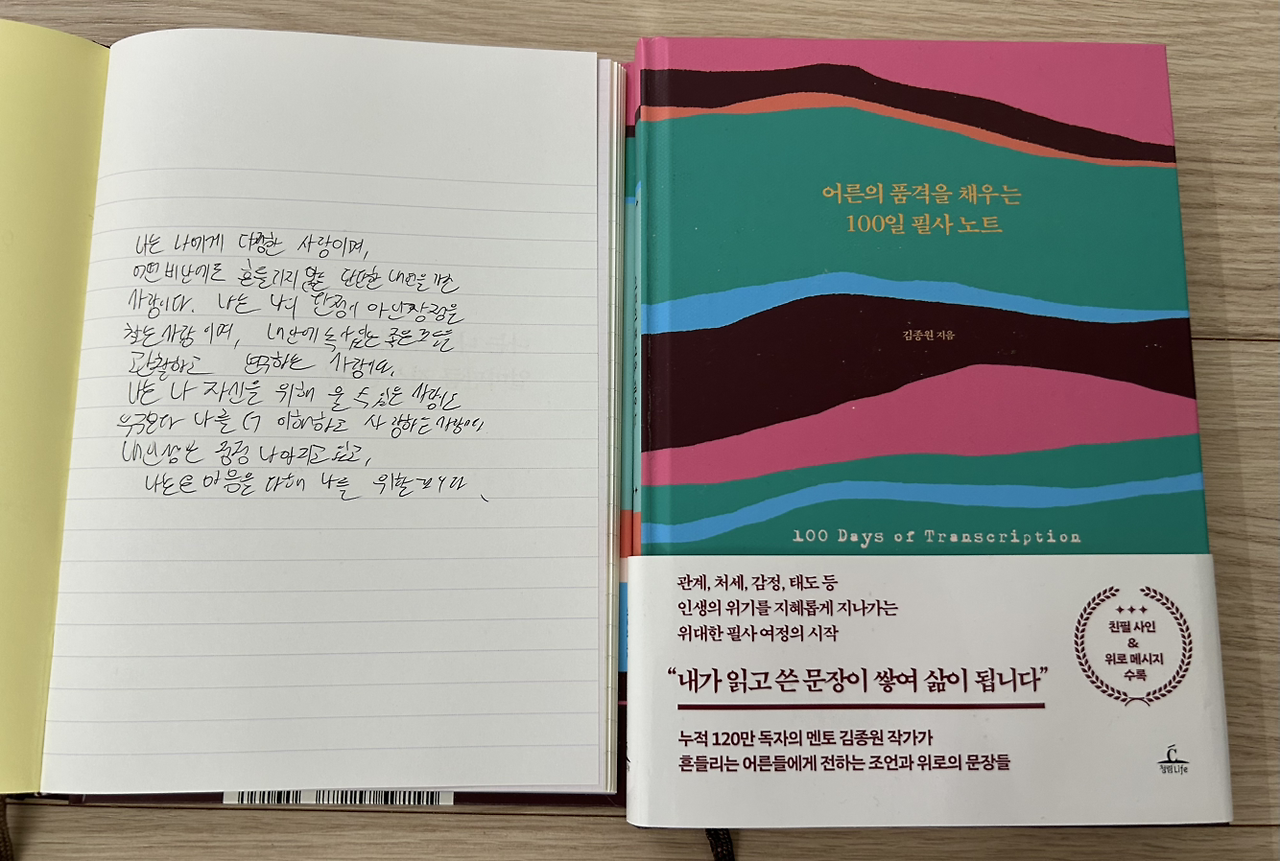 나는 나에게 다정한 사람이며,
어떤 비난에도 흔들리지 않는 단단한 내면을 가진
사람이다. 나는 나의 단점이 아닌 장점을
찾는 사람이며, 내 안에 녹아있는 좋은 것들을
관찰하고 하는 사람이다.
나는 나 자신을 위해 울 수 있는 사람이고
누구보다 나를 더 이해하고 사랑하는 사람이다
내 인생은 점점 나아지고 있고,
나는 온 마음을 다해 나를 위할 것이다.
어른의 품격을 채우는
100일 필사 노트
김종원 지음
100 Days of Transcription
관계, 처세, 감정, 태도 등
인생의 위기를 지혜롭게 지나가는
위대한 필사 여정의 시작
“내가 읽고 쓴 문장이 쌓여 삶이 됩니다”
누적 120만 독자의 멘토 김종원 작가가
흔들리는 어른들에게 전하는 조언과 위로의 문장들
친필 사인
&
위로 메시지
수록
청림Life